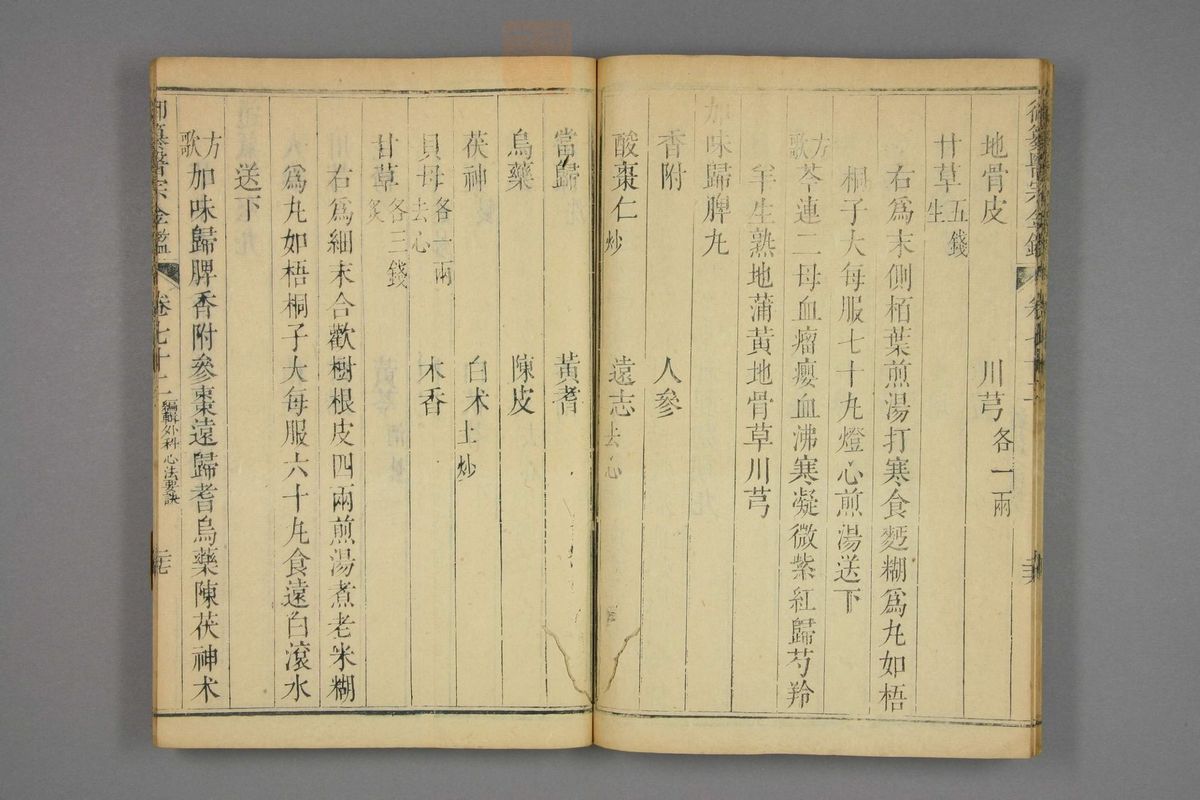 地骨皮 川芎各一兩
甘草生五錢
右爲末側栢葉煎湯打寒食麪糊爲丸如梧
桐子大每服七十丸燈心煎湯送下
方歌 芩連二母血瘤癭血沸寒凝微紫紅歸芍羚
羊生熟地蒲黃地骨草川芎
加味歸脾丸
香附 人參
酸棗仁炒 遠志去心
當歸 黃耆
烏藥 陳皮
茯神 白术土炒
貝母去心各一兩 木香
甘草炙各三錢
右爲細末合歡樹根皮四兩煎湯煮老米糊
爲丸如梧桐子大每服六十丸食遠白滾水
送下
方歌 加味歸脾香附參棗遠歸耆烏藥陳茯神术
御纂醫宗金鑑 卷七十二 編輯外科心法要訣